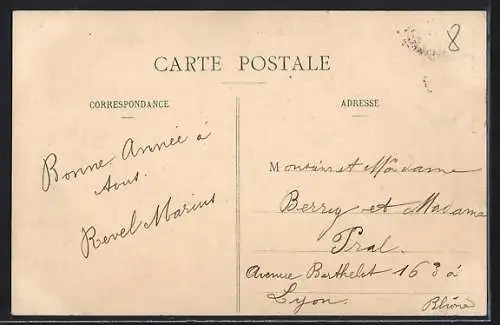 8
CARTE POSTALE
CORRESPONDANCE
ADRESSE
Bonne Année à
tous.
Revel Marius
Monsieur et Madame
Berrey et Madame
Pral.
Avenue Berthelot 163 à
Lyon.
Rhône